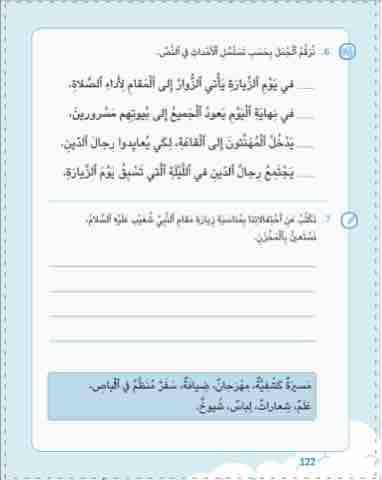 6. نُرَقِّمُ ٱلْجُمَلَ بِحَسَبِ تَسَلْسُلِ ٱلْأَحْداثِ فِي ٱلنَّصِّ.
____ في يَوْمِ ٱلزِّيارَةِ يَأْتي ٱلزُّوّارُ إِلى ٱلْمَقامِ لِأَداءِ ٱلصَّلاةِ.
____ في نِهايَةِ ٱلْيَوْمِ يَعودُ ٱلْجَميعُ إِلى بُيوتِهِم مَسْرورينَ.
____ يَدْخُلُ ٱلْمُهَنِّئونَ إِلى ٱلْقاعَةِ، لِكَي يُعايِدوا رِجالَ ٱلدّينِ.
____ يَجْتَمِعُ رِجالُ ٱلدّينِ في ٱللَّيْلَةِ ٱلَّتي تَسْبِقُ يَوْمَ ٱلزِّيارَةِ.
7. نَكْتُبُ عَنِ ٱحْتِفالاتِنا بِمُناسَبَةِ زِيارَةِ مَقامِ ٱلنَّبِيِّ شُعَيْبٍ عَلَيْهِ ٱلسَّلامُ،
نَسْتَعينُ بِٱلْمَخْزَنِ.
مَسيرَةٌ كَشْفِيَّةٌ، مِهْرَجانٌ، ضِيافَةٌ، سَفَرٌ مُنَظَّمٌ فِي ٱلْباصِ،
عَلَمٌ، شِعاراتٌ، لِباسٌ، شُيوخٌ.
122